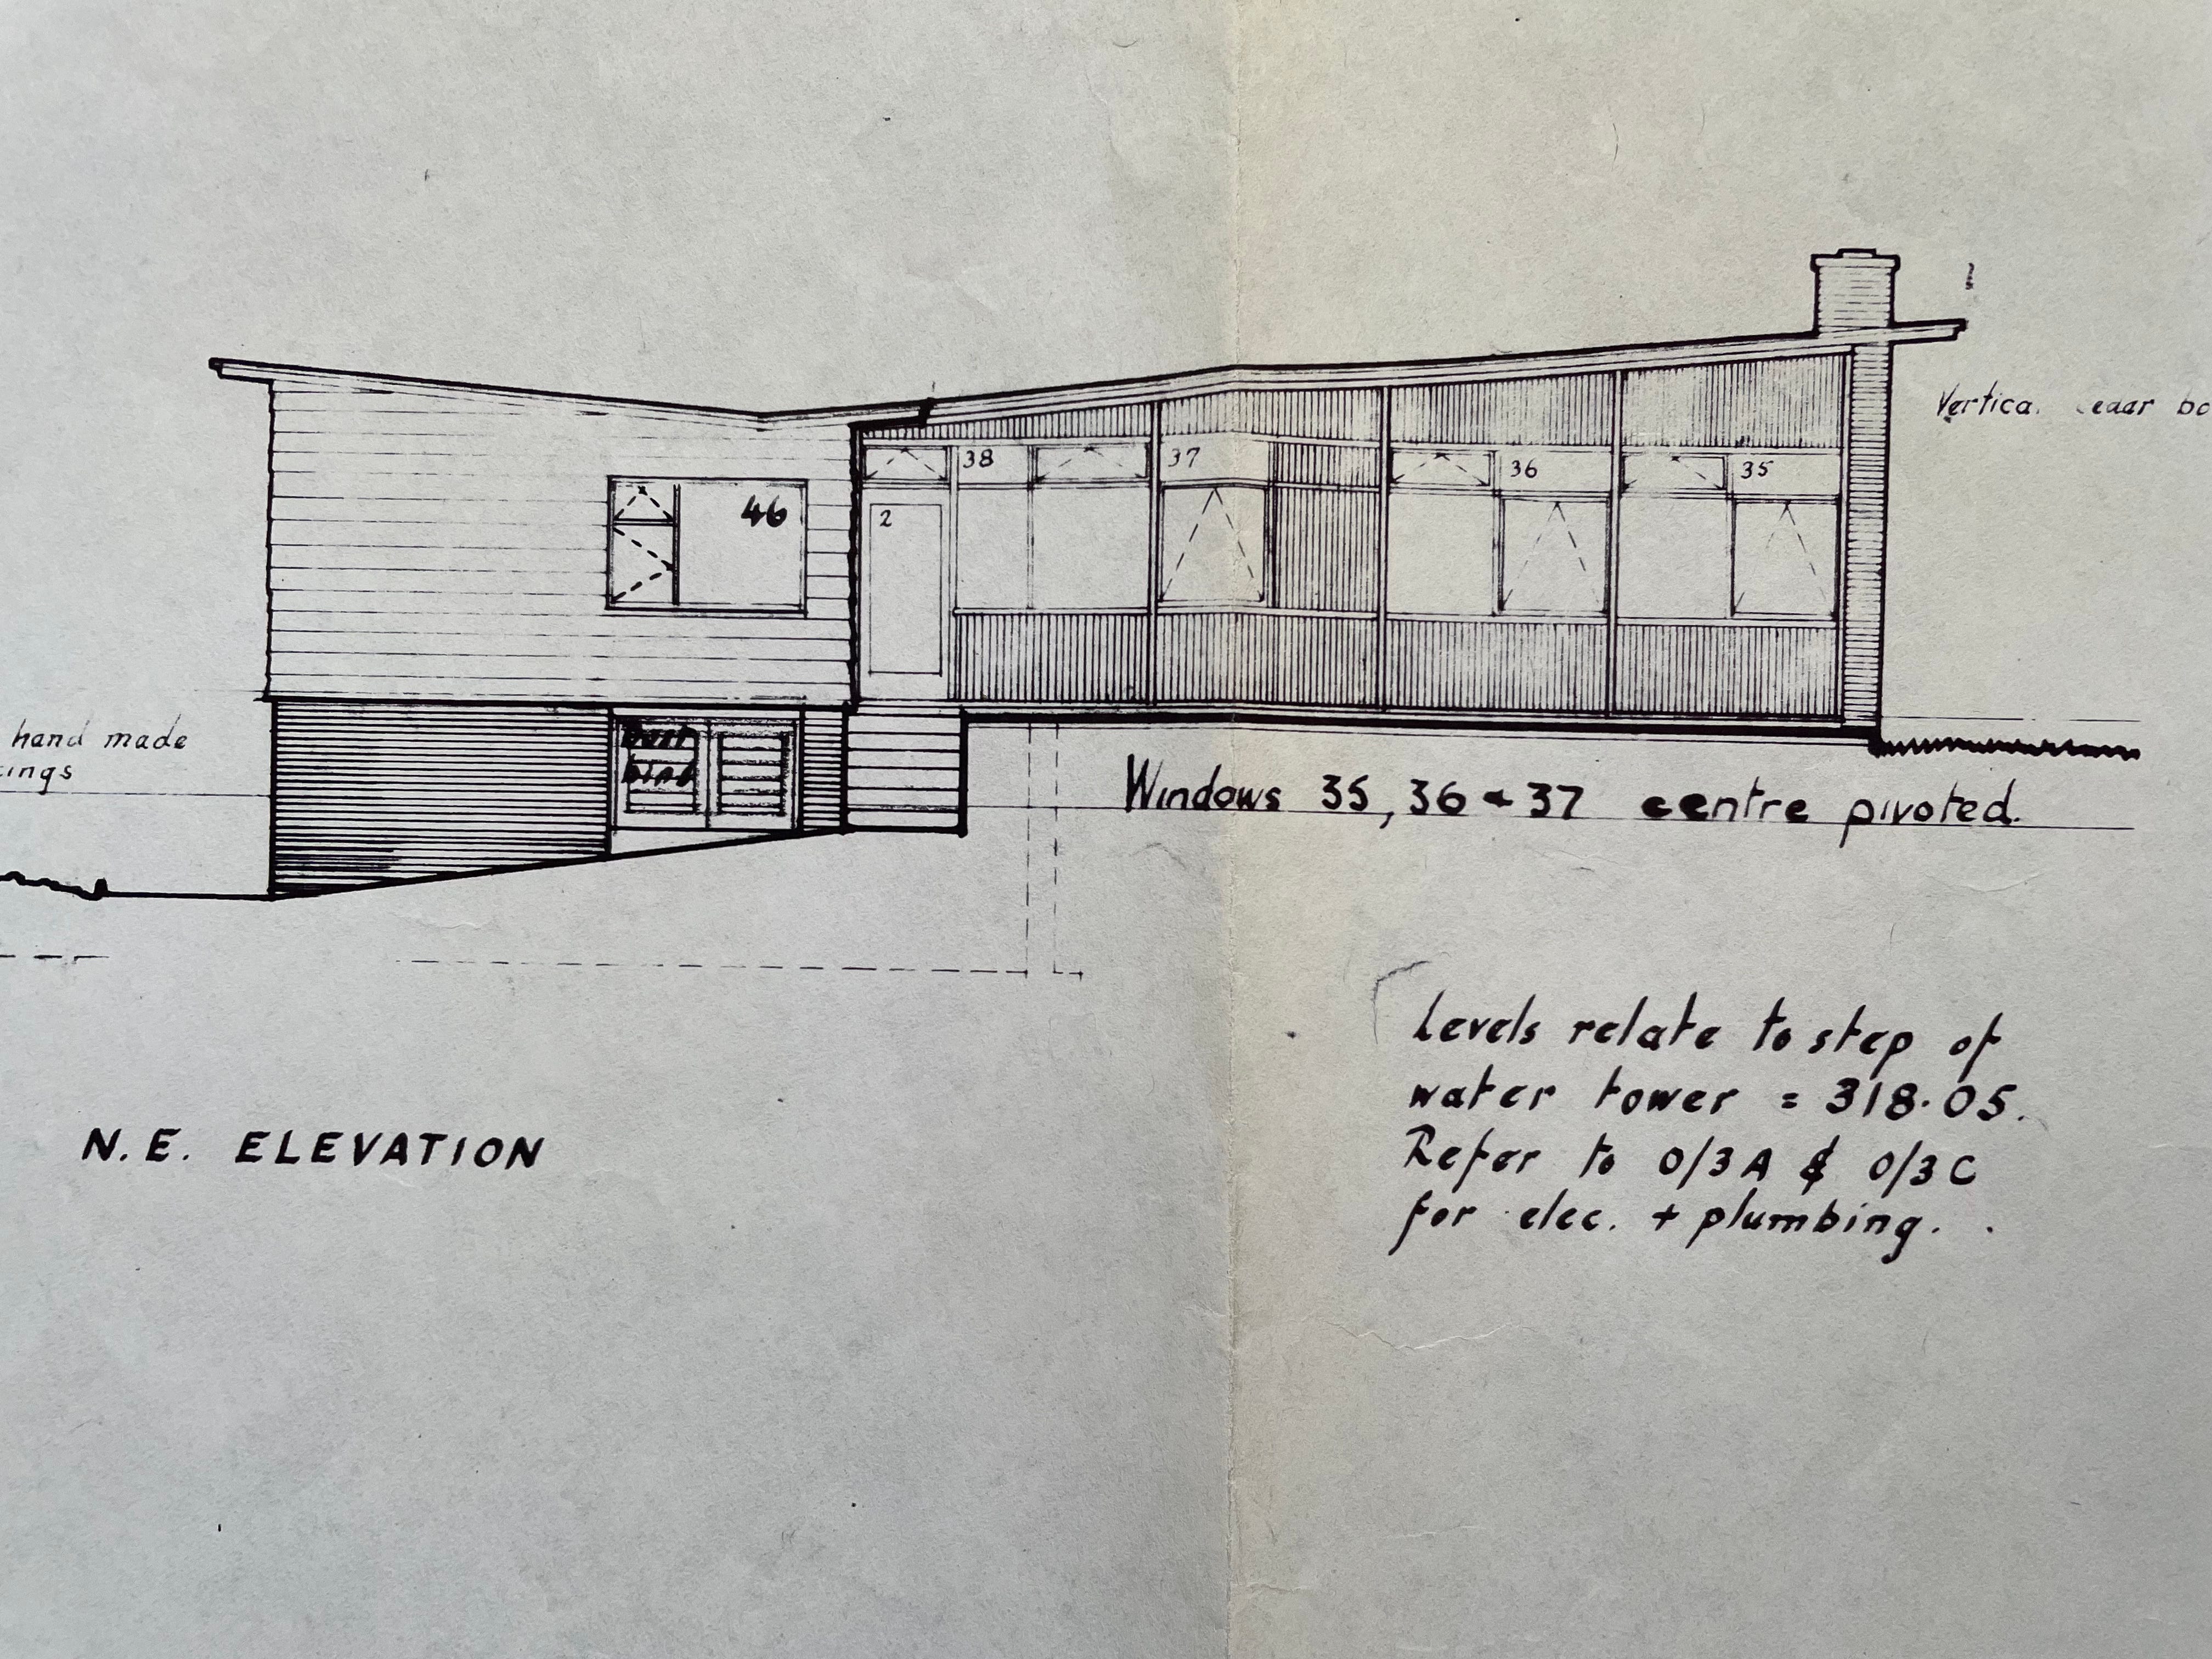 Vertical cedar bo
38
37
36
35
46
2
Dust
bins
hand made
ings
Windows 35, 36 & 37 centre pivoted.
Levels relate to step of
water tower = 318.05.
Refer to 0/3A & 0/3C
for elec. + plumbing.
N.E. ELEVATION